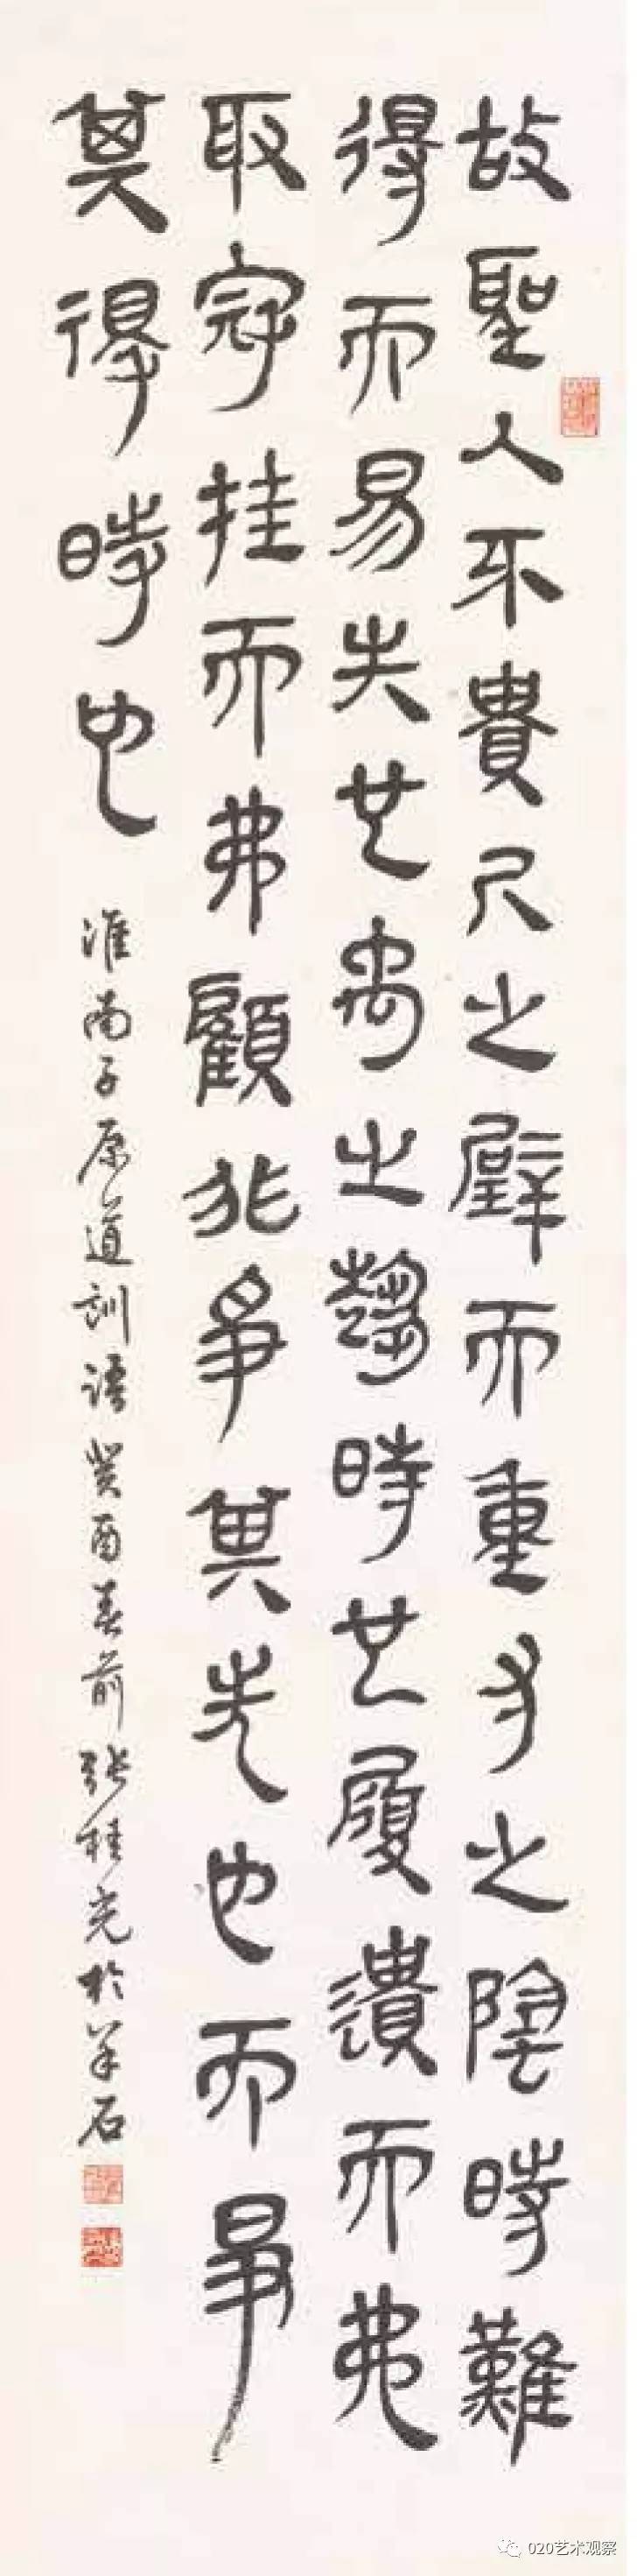 故聖人不貴尺之璧而重寸之陰時難
得而易失也禹之趨時也履遺而弗
取冠挂而弗顧非爭其先也而爭
其得時也
淮南子原道訓語癸酉春前張桂光於羊石
020艺术观察